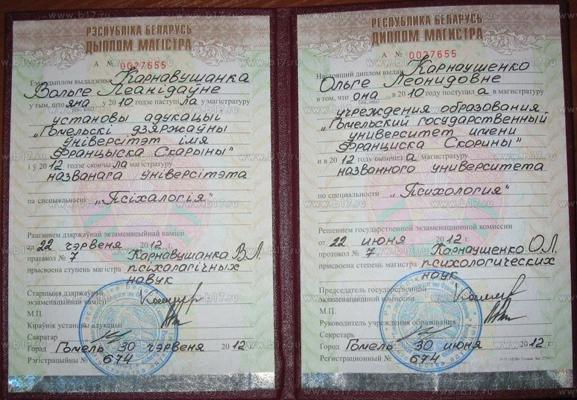 РЭСПУБЛІКА БЕЛАРУСЬ
ДЫПЛОМ МАГІСТРА
А № 0027655
Гэты дыплом выдадзены Карнавушанка
Вользе Леанідаўне
у тым, што яна у 2010 годзе паступіла ў магістратуру
установы адукацыі
„Гомельскі дзяржаўны
ўніверсітэт імя
Францыска Скарыны"
і ў 2012 годзе скончыла магістратуру
названага ўніверсітэта
па спецыяльнасці „Псіхалогія"
Рашэннем дзяржаўнай экзаменацыйнай камісіі
от 22 чэрвеня 2012 г.
пратакол № 7 Карнавушанка В.Л.
прысвоена ступень магістра псіхалагічных
навук
Старшыня дзяржаўнай
экзаменацыйнай камісіі
М.П.
Кіраўнік установы адукацыі
Сакратар
Горад Гомель 30 чэрвеня 2012
Рэгістрацыйны № 674
РЕСПУБЛИКА БЕЛАРУСЬ
ДИПЛОМ МАГИСТРА
А № 0027655
Настоящий диплом выдан Карнаушенко
Ольге Леонидовне
в том, что она в 2010 г. поступила в магистратуру
учреждения образования
„Гомельский государственный
университет имени
Франциска Скорины"
и в 2012 г. окончила магистратуру
названного университета
по специальности „Психология"
Решением государственной экзаменационной комиссии
от 22 июня 2012 г.
протокол № 7 Карнаушенко О.Л.
присвоена степень магистра психологических
наук
Председатель государственной
экзаменационной комиссии
М.П.
Руководитель учреждения образования
Секретарь
Город Гомель 30 июня 2012
Регистрационный № 674
www.b17.ru